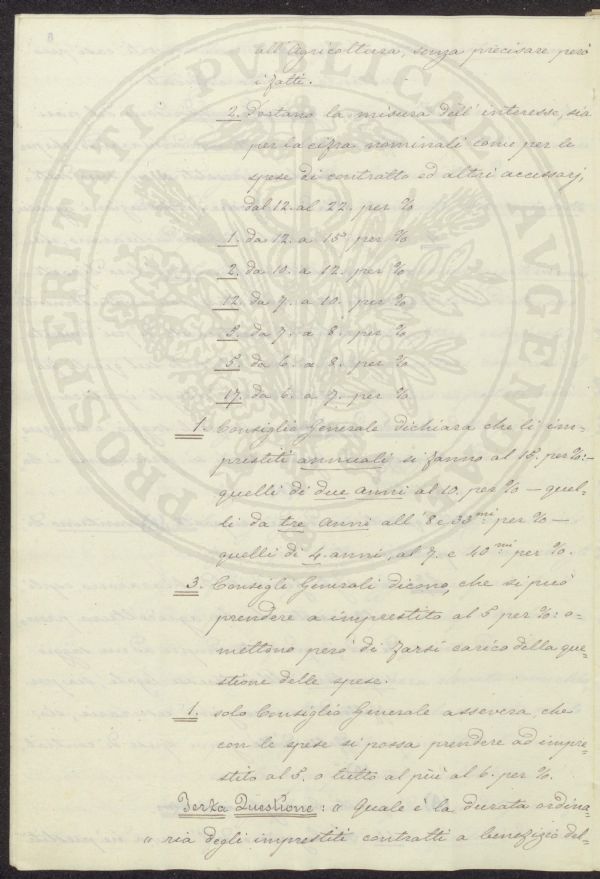 all'Agricoltura, senza precisare però
i fatti.
2. Portano la misura dell'interesse, sia
per la cifra nominali come per le
spese di contratto ed altri accessorj,
dal 12. al 22. per %
1. da 12. a 15. per %
2. da 10. a 12. per %
12. da 7. a 10. per %
3. da 7. a 8. per %
5. da 6. a 8. per %
17. da 6. a 7. per %
1. Consiglio Generale dichiara che li im=
prestiti annuali si fanno al 15. per %:—
quelli di due anni al 10. per % — quel=
li da tre anni all'8 e 33mi per % —
quelli di 4. anni, al 7. e 40mi per %.
3. Consigli Generali dicono, che si può
prendere a imprestito al 5 per %: o=
mettono però di farsi carico della que=
stione delle spese.
1. solo Consiglio Generale assevera, che
con le spese si possa prendere ad impre=
stito al 5. o tutto al più al 6. per %.
Terza Questione: „ Quale è la durata ordina=
„ ria degli imprestiti contratti a benefizio del=
PROSPERITATI PUBLICAE AUGENDAE